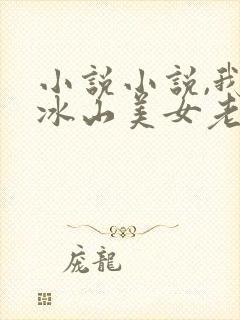 小說小說,我
冰山美女老
庞龍